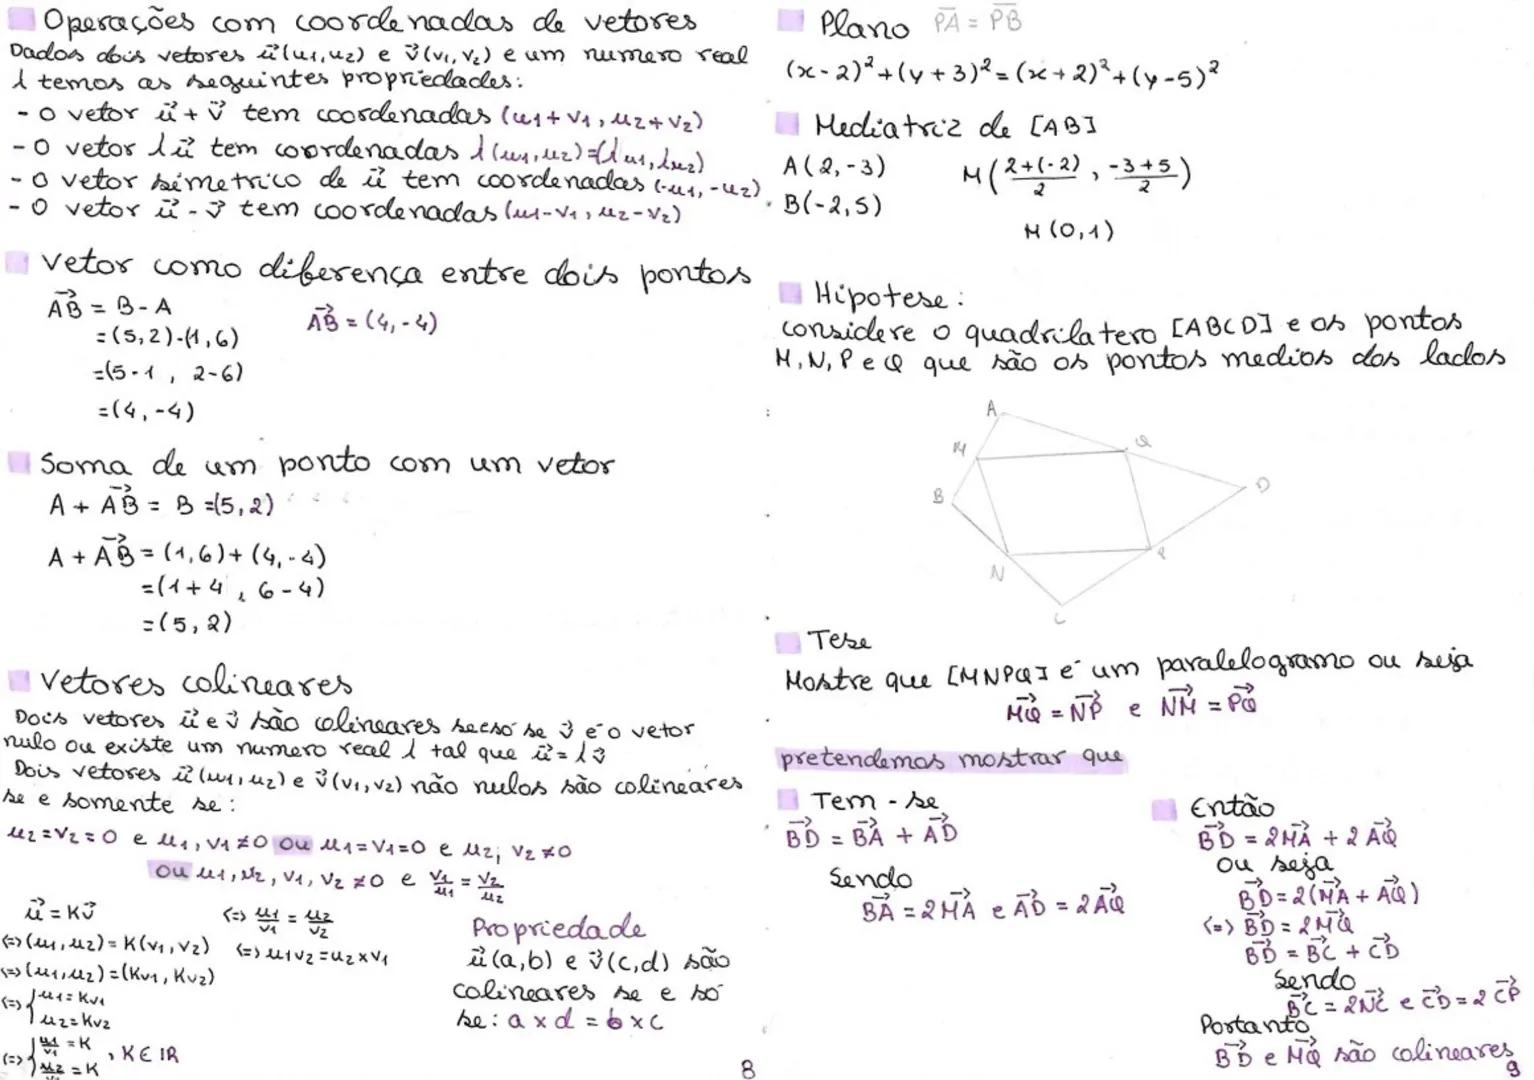 Operações com coordenadas de vetores
Dados dois vetores u⃗(u1,u2) e v⃗(v1,v2) e um numero real
λ temos as seguintes propriedades:
- O vetor u⃗+v⃗ tem coordenadas (u1+v1, u2+v2)
- O vetor λu⃗ tem coordenadas λ(u1,u2)=(λu1,λu2)
- O vetor simetrico de u⃗ tem coordenadas (-u1,-u2)
- O vetor u⃗-v⃗ tem coordenadas (u1-v1, u2-v2)
Vetor como diferença entre dois pontos
AB⃗ = B-A
=(5,2)-(1,6)
=(5-1, 2-6)
=(4,-4)
AB⃗=(4,-4)
Soma de um ponto com um vetor
A+AB⃗ = B =(5,2)
A+AB⃗=(1,6)+(4,-4)
=(1+4, 6-4)
=(5,2)
Vetores colineares
Dois vetores u⃗ e v⃗ são colineares se e só se v⃗ é o vetor
nulo ou existe um numero real λ tal que u⃗=λv⃗
Dois vetores u⃗(u1,u2) e v⃗(v1,v2) não nulos são colineares
se e somente se:
u2=v2=0 e u1,v1≠0 ou u1=v1=0 e u2; v2≠0
ou u1,u2,v1,v2≠0 e v1/u1=v2/u2
u⃗=Kv⃗
(=)(u1,u2)=K(v1,v2)
(=)(u1,u2)=(Kv1,Kv2)
(=){u1=Kv1
u2=Kv2
(=){u1/v1=K
u2/v2=K
, K∈IR
(=) u1/v1=u2/v2
(=) u1v2=u2xv1
Propriedade
u⃗(a,b) e v⃗(c,d) são
colineares se e só
se: a x d = b x c
8
Plano PA=PB
(x-2)²+(y+3)²=(x+2)²+(y-5)²
Mediatriz de [AB]
A(2,-3)
B(-2,5)
M(2+(-2)/2, -3+5/2)
M(0,1)
Hipotese:
considere o quadrilatero [ABCD] e os pontos
M,N,P e Q que são os pontos medios dos lados
A
M
Q
B
D
P
N
C
Tese
Mostre que [MNPQ] é um paralelogramo ou seja
MQ⃗=NP⃗ e NM⃗=PQ⃗
pretendemos mostrar que
Tem-se
BD⃗=BA⃗+AD⃗
Sendo
BA⃗=2MA⃗ e AD⃗=2AQ⃗
Então
BD⃗=2MA⃗+2AQ⃗
ou seja
BD⃗=2(MA⃗+AQ⃗)
(=) BD⃗=2MQ⃗
BD⃗=BC⃗+CD⃗
Sendo
BC⃗=2NC⃗ e CD⃗=2CP⃗
Portanto
BD⃗ e MQ⃗ são colineares
9